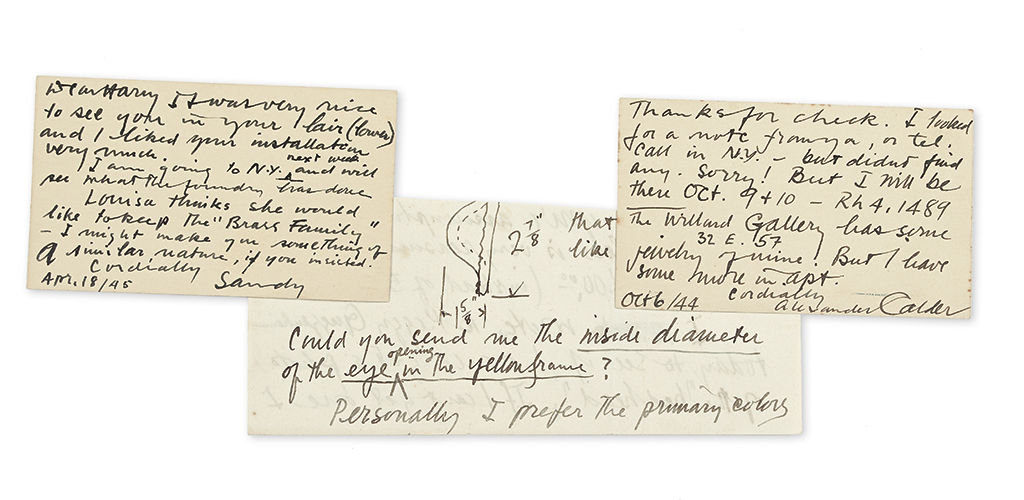 Dear Harry It was very nice
to see you in your lair (lower)
and I liked your installation
very much.
I am going to N.Y. next week and will
see what the foundry has done
Louisa thinks she would
like to keep the "Brass Family"
- I might make you something of
a similar nature, if you insisted.
Cordially
Apr. 18/45 Sandy
Thanks for check. I looked
for a note from ya, or tel.
call in N.Y. - but didnt find
any. Sorry! But I will be
there Oct. 9+10 - Rh 4. 1489
The Willard Gallery has some
32 E. 57
jewelry of mine. But I have
some more in apt.
Cordially
Oct 6/44 Alexander Calder
2 7/8" that
like
1 5/8"
Could you send me the inside diameter
of the eye opening in the yellow frame ?
Personally I prefer the primary colors